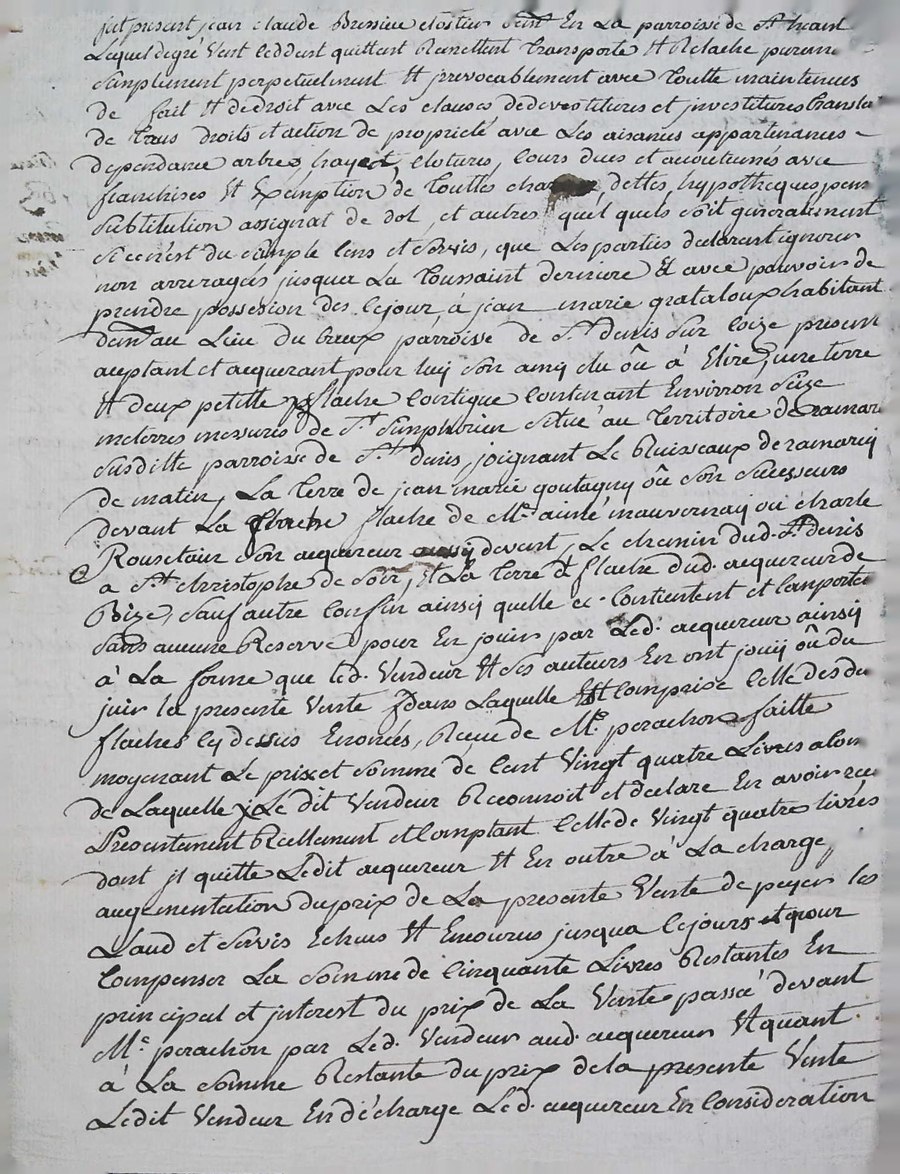 fut present jean claude Bressieu clostier dem.t En La parroisse de S.t
Lequel degré Vent cedde et quittant Remettent Transporte Et Relache purement
Simplement perpetuelment Et jrrevocablement avec Toutte maintenues
de fait Et dedroit avec Les clauses dedevestitures et jnvestitures translat
de tous droits et action de propriete avec Les aisances appartenances
dependance arbres hayes clotures, cours dues et accoutumés avec
franchises Et Exemption de Touttes charges, dettes, hypotheques pens
Substitution assignat de dot, et autres quel quels soit generalement
Si ce n'est du simple Cens et Servis, que Les parties declarent ignorer
non arreragés jusques La Toussaint derniere Et avec pouvoir de
prendre possession des cejour, à jean marie grataloup habitant
dem.t au Lieu du breux parroisse de S.t denis sur Coize present
aceptant et acquerant pour luy Son amy élu oû à Elire, une terre
Et deux petitte flache contigue contenant Environ Seize
meterres mesures de S.t Simphorien Situé au Territoire de ramari
Susditte parroisse de S.t denis, joignant Le Ruisseaux de ramariy
de matin, La terre de jean marie goutagny oû Son Sucesseurs
devant La flache de M.e ainlé mauvernay ou charle
Rousctain Son acquereur devant, Le chemin dud. S.t denis
a S.t christophe de Soir, Et La Terre Et flache dud. acquereur de
Bize, Sauf autre Confin ainsiy quelle Se Contientent et Camporte
Sans aucune Reserve pour En jouir par Led. acquereur ainsiy
à La forme que led. Vendeur Et Ses auteurs En ont jouiy oû du
juir la presente Vente dans Laquelle Est Comprise Celle des deu
flaches Cy dessus Enoncés, Recue de M.e perachon faitte
moyenant Le prix et Somme de Cent Vingt quatre Livres alon
de Laquelle Le dit Vendeur Reconnoit et declare En avoir recu
Presentement Reellement et Comptant Celle de Vingt quatre livres
dont jl quitte Ledit acquereur Et En outre à La charge,
augmentation du prix de La presente Vente de peyer les
Laud et Servis Echeus Et Encourus jusqua Cejours et pour
Compenser La Somme de Cinquante Livres Restantes En
principal et jnterest du prix de La Vente passé devant
M.e perachon par Led. Vendeur aud. acquereur Et quant
à La Somme Restante du prix dela presente Vente
Ledit Vendeur En décharge Led. acquereur En Consideration